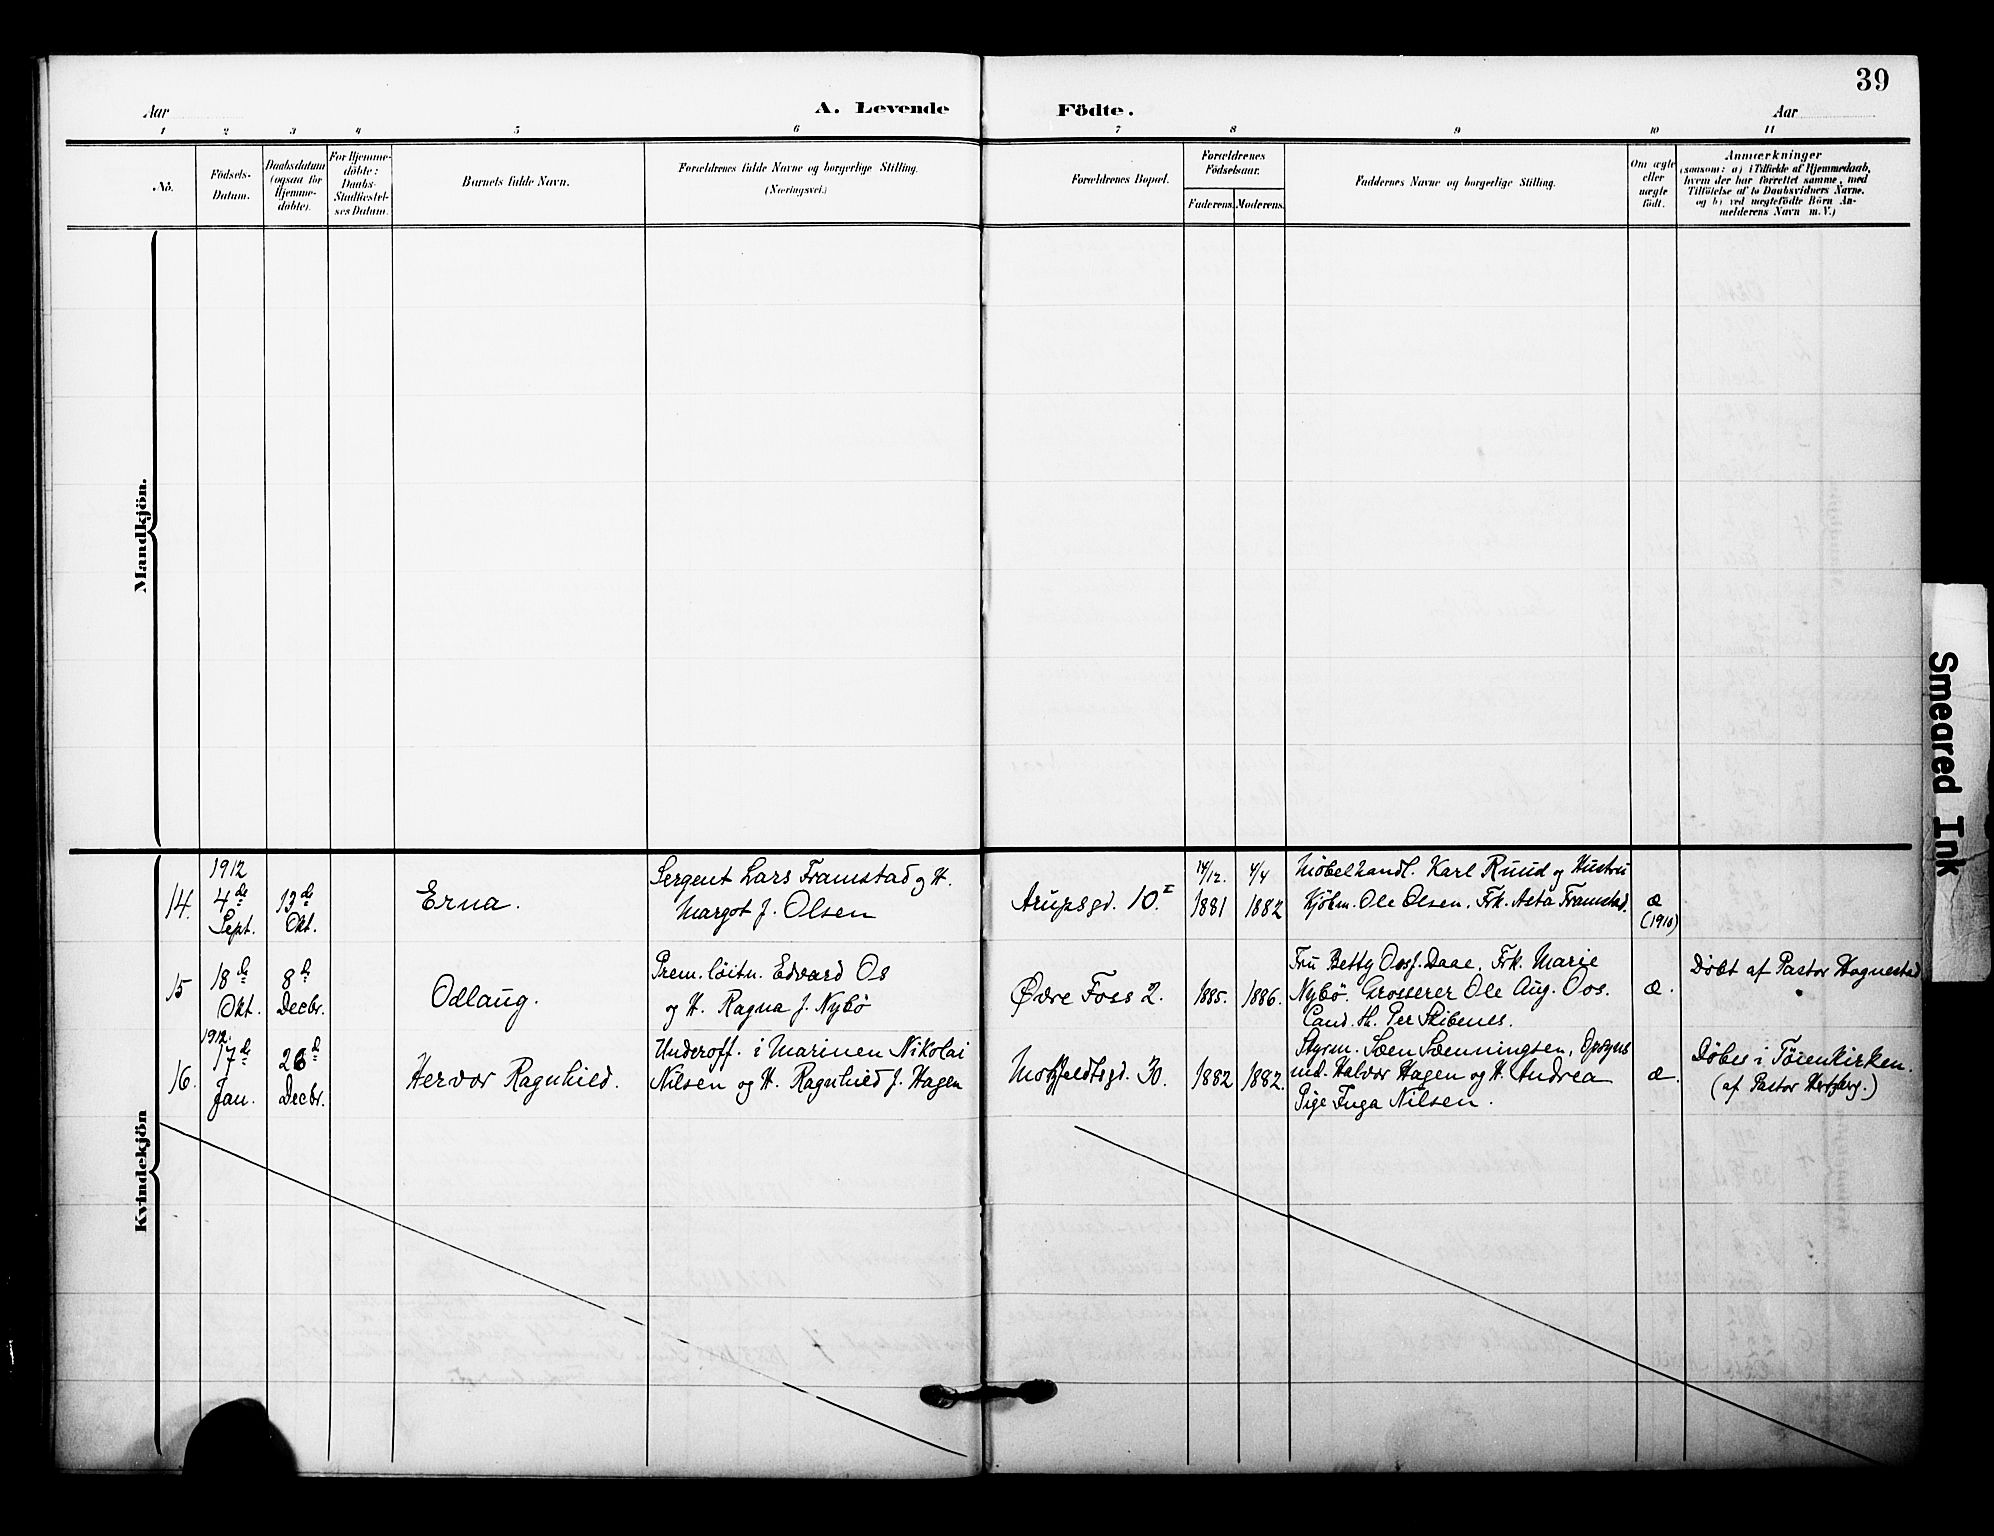 39
Aar
A. Levende Födte.
Aar
1 2 3 4 5 6 7 8 9 10 11
No.
Födsels-
Datum.
Daabsdatum
(ogsaa for
Hjemme-
döbte).
For Hjemme-
döbte:
Daabs-
Stadfæstel-
ses Datum.
Barnets fulde Navn.
Forældrenes fulde Navne og borgerlige Stilling.
(Næringsvei.)
Forældrenes Bopæl.
Forældrenes
Födselsaar.
Faderens. Moderens.
Faddernes Navne og borgerlige Stilling.
Om ægte
eller
uægte
født.
Anmærkninger
(saasom: a) i Tilfælde af Hjemmedaab,
hvem der har forrettet samme, med
Tilföielse af to Daabsvidners Navne.
og b) ved uægtefödte Börn An-
melderens Navn m. V.)
Mandkjön.
Kvindekjön
14.
1912
4de
Sept.
13de
Okt.
Erna.
Sergent Lars Framstad og H.
Margot f. Olsen
Arupsgd. 10.I
14/12.
1881
4/4
1882
Møbelhandl. Karl Ruud og Hustru
Kjøbm. Ole Olsen. Frk. Asta Framstad.
æ
(1910)
15
18de
Okt.
8de
Decbr.
Odlaug.
Prem. löitn. Edvard Os
og H. Ragna f. Nybø
Øvre Foss 2.
1885.
1886.
Fru Betty Oos f. Daae. Frk. Marie
Nybö. Grosserer Ole Aug. Oos.
Cand. th. Per Skibenes.
æ.
Döbt af Pastor Hognestad
16.
1912.
17de
Jan.
26de
Decbr.
Hervor Ragnhild.
Underoff. i Marinen Nikolai
Nilsen og H. Ragnhild f. Hagen
Motzfeldtsgd. 30.
1882
1882.
Styrm. Søen Søenningsen, Opsyns
md. Halvor Hagen og H. Andrea
Pige Inga Nilsen.
æ.
Döbt i Töienkirken.
(af Pastor Hertzberg.)
Smeared Ink